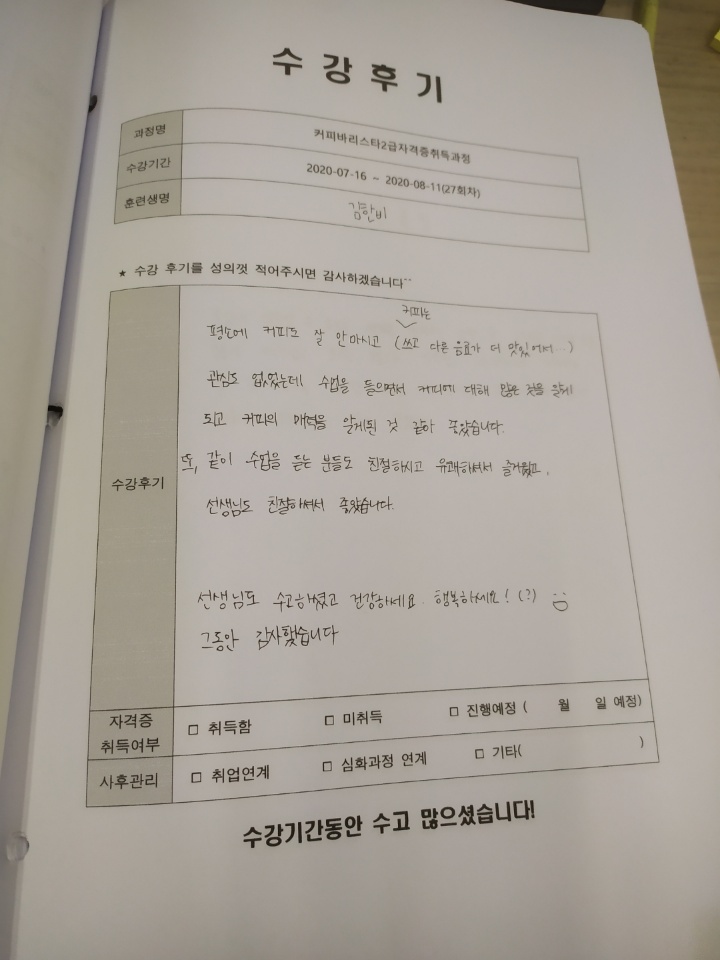 수강후기
과정명 커피바리스타2급자격증취득과정
수강기간 2020-07-16 ~ 2020-08-11(27회차)
훈련생명 김한비
★ 수강 후기를 성의껏 적어주시면 감사하겠습니다^^
커피는
평소에 커피도 잘 안마시고 (쓰고 다른 음료가 더 맛있어서..)
관심도 없었는데 수업을 들으면서 커피에 대해 많은 것을 알게
되고 커피의 매력을 알게된 것 같아 좋았습니다.
또, 같이 수업을 듣는 분들도 친절하시고 유쾌하셔서 즐거웠고,
수강후기
선생님도 친절하셔서 좋았습니다.
선생님도 수고하셨고 건강하세요. 행복하세요! (?)
그동안 감사했습니다
자격증 취득여부 □ 취득함 □ 미취득 □ 진행예정 ( 월 일 예정)
사후관리 □ 취업연계 □ 심화과정 연계 □ 기타( )
수강기간동안 수고 많으셨습니다!